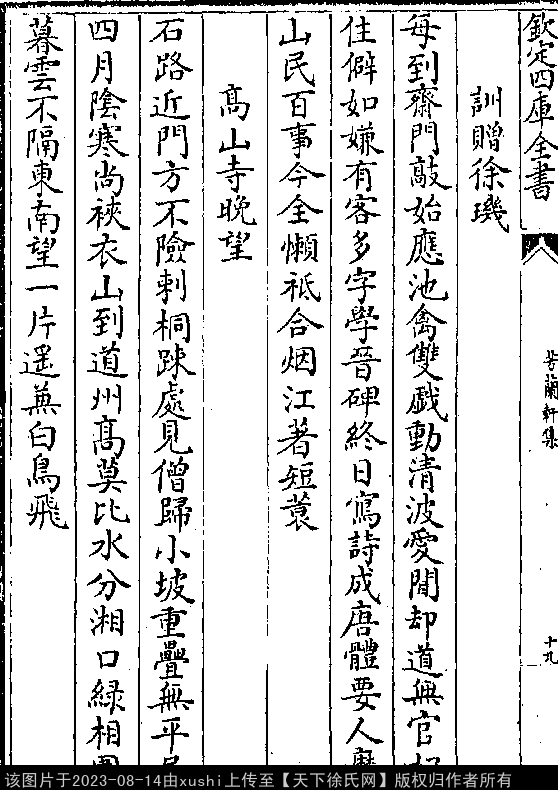 欽定四庫全書
芳蘭軒集
十九
訓贈徐璣
每到齋門敲始應池禽雙戲動清波愛閒却道無官好
住僻如嫌有客多字學晉碑終日寫詩成唐體要人磨
山民百事今全懶祗合烟江著短蓑
髙山寺晚望
石路近門方不險刺桐踈處見僧歸小坡重疊無平
四月陰寒尚裌衣山到道州髙莫比水分湘口綠相圍
暮雲不隔東南望一片遥兼白鳥飛
该图片于2023-08-14由xushi上传至【天下徐氏网】版权归作者所有